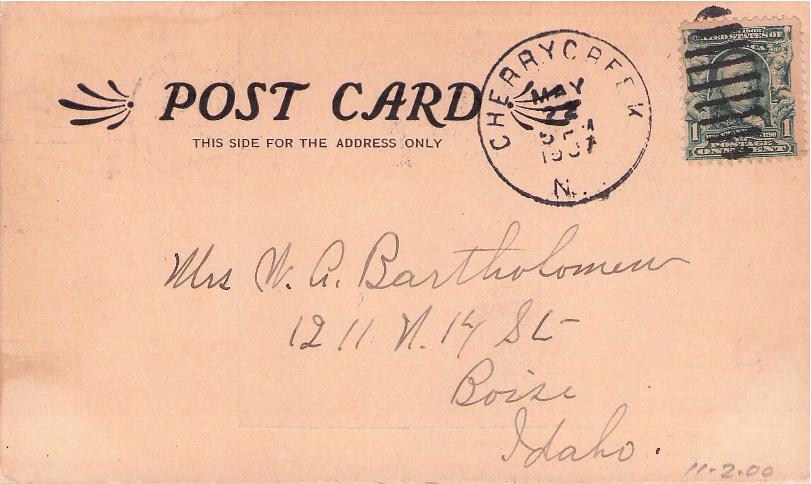 POST CARD
THIS SIDE FOR THE ADDRESS ONLY
CHERRY CREEK
MAY
1907
N.
1
1
POSTAGE
ONE CENT
Mrs W. A. Bartholomew
1211 N. 14 St
Boise
Idaho.
11-2.00